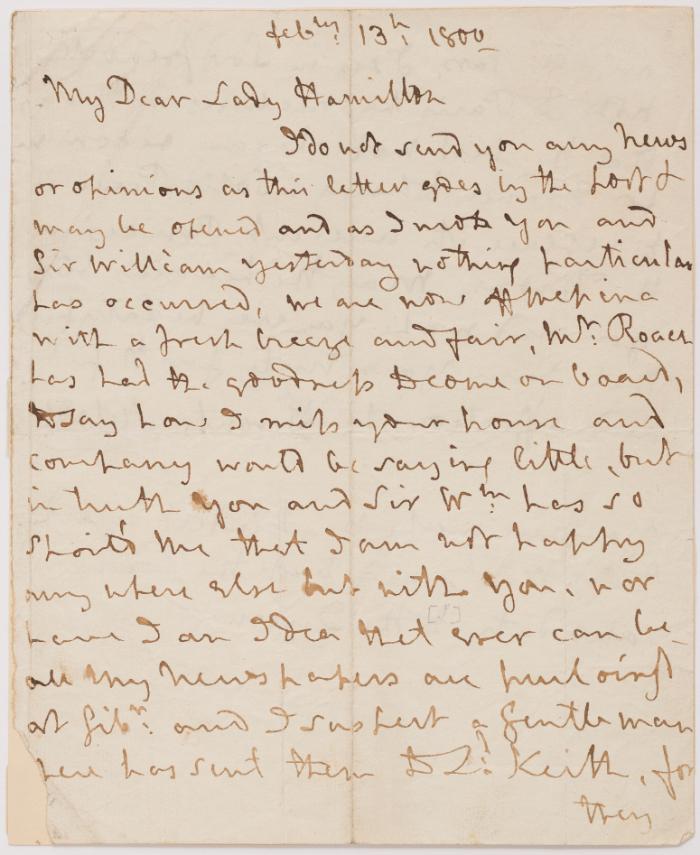 febry. 13th. 1800
My Dear Lady Hamilton
I do not send you any News
or opinions as this letter goes by the post &
may be opened and as I wrote you and
Sir William yesterday nothing particular
has occurred, we are now off Messina
with a fresh breeze and fair, Mr. Roach
has had the goodness to come on board,
to say how I miss your house and
company would be saying little, but
in truth you and Sir Wm. has so
spoil'd me that I am not happy
any where else but with you, nor
have I an Idea that ever can be
all my Newspapers are purloin'd
at Gibr. and I suspect a Gentleman
here has sent them to Ld. Keith, for
they